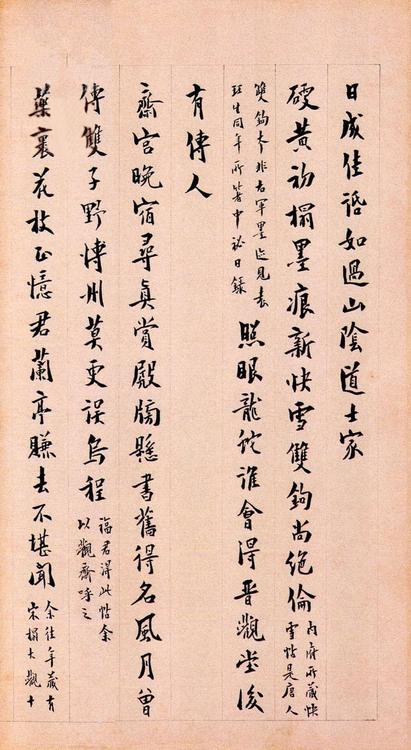 日成佳話如過山陰道士家
硬黃初搨墨痕新快雪雙鉤尚絕倫
內府所藏快
雪帖是唐人
雙鉤本非右軍墨迹見袁
珏生同年所著中祕日錄
照眼龍蛇誰會得晉觀堂後
有傳人
齋宮晚宿尋真賞殿牓懸書舊得名風月曾
傳雙子野愽州莫更誤烏程
福君得此帖余
以觀齋呼之
藥裹花枝正憶君蘭亭賺去不堪聞
余往年藏有
宋搨大觀十